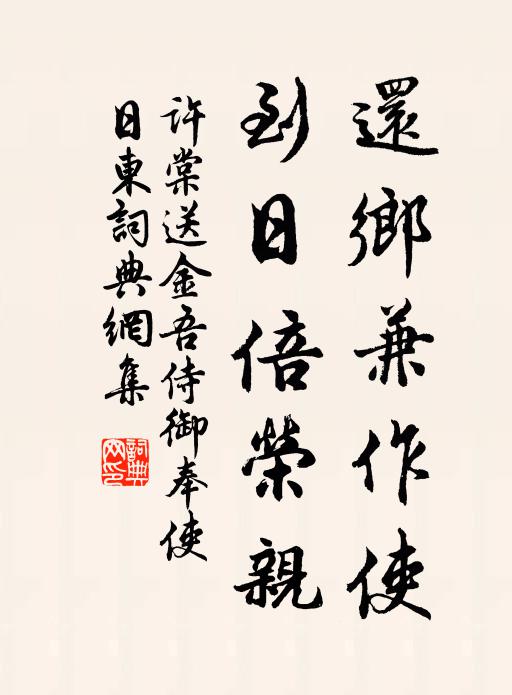 還鄉兼作使
到日倍榮親
許棠送金吾侍御奉使
日東詞典網集
詞典網印